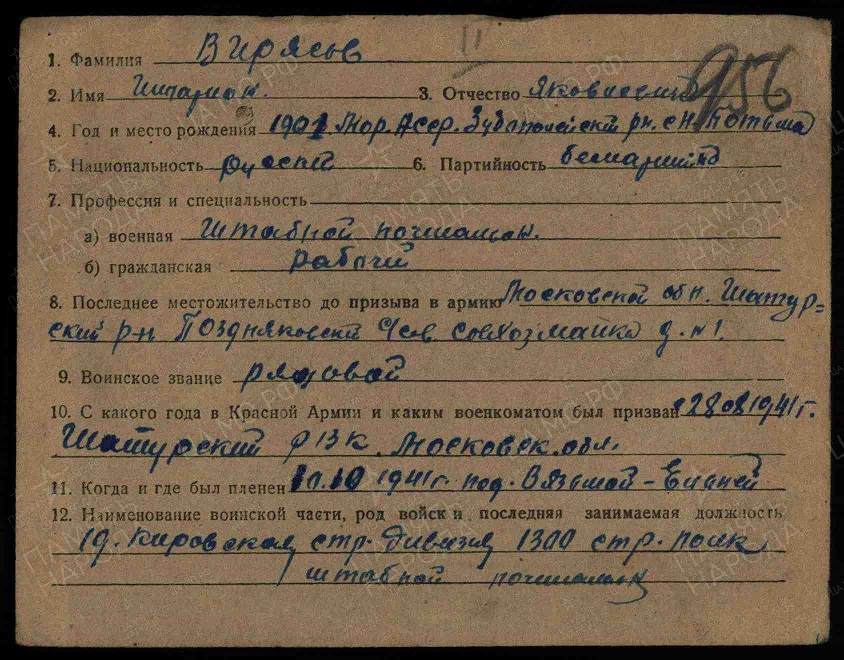 II
956
1. Фамилия Вирясов
2. Имя Иларион. 3. Отчество Яковлевич
4. Год и место рождения 1901 Мор. Асср. Зубополейский рн. с Н. Потьма
5. Национальность русский 6. Партийность беспартийн
7. Профессия и специальность
а) военная Штабной почтальон.
б) гражданская рабочий
8. Последнее местожительство до призыва в армию Московской обл. Шатур=
ский р-н Поздняковский с/сов. совхоз Майка д. №1.
9. Воинское звание рядовой
10. С какого года в Красной Армии и каким военкоматом был призван 28 08 1941 г.
Шатурский РВК. Московск. обл.
11. Когда и где был пленен 10.10 1941 г. под. Вязьмой -
12. Наименование воинской части, род войск и последняя занимаемая должность
Кировская стр. дивизия 1300 стр. полк
штабной почтальон
ПАМЯТЬ НАРОДА